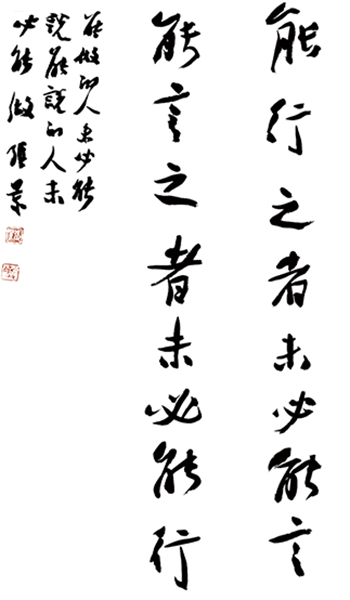 能行之者未必能言
能言之者未必能行
能做的人未必能
说能說的人未
必能做 张